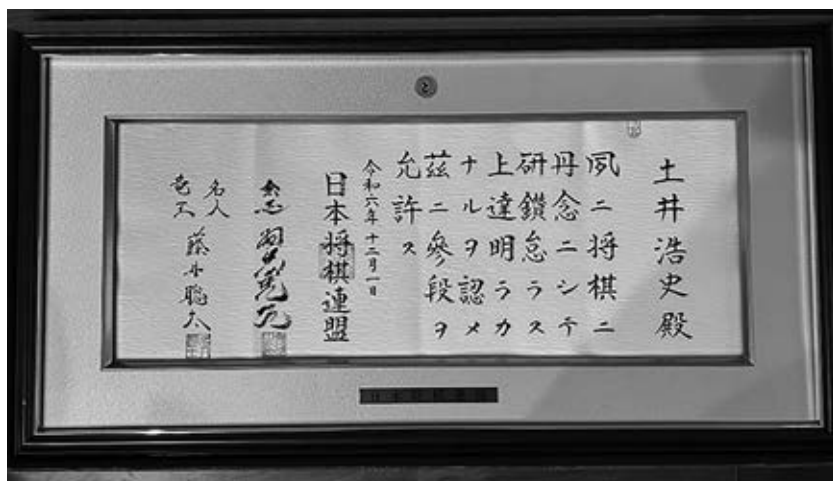 土井浩史殿
夙ニ将棋ニ
丹念ニシテ
研鑽怠ラス
上達明ラカ
ナルヲ認メ
茲ニ參段ヲ
允許ス
令和六年十二月一日
日本将棋連盟
会長 羽生善治
名人
竜王 藤井聡太